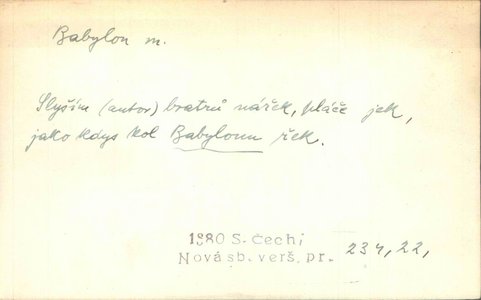 Babylon m.
Slyším (autor) bratrů nářek, pláče jek,
jako kdys kol Babylonu řek.
1880 S. Čech,
Nová sb. verš. pr. 234, 22,